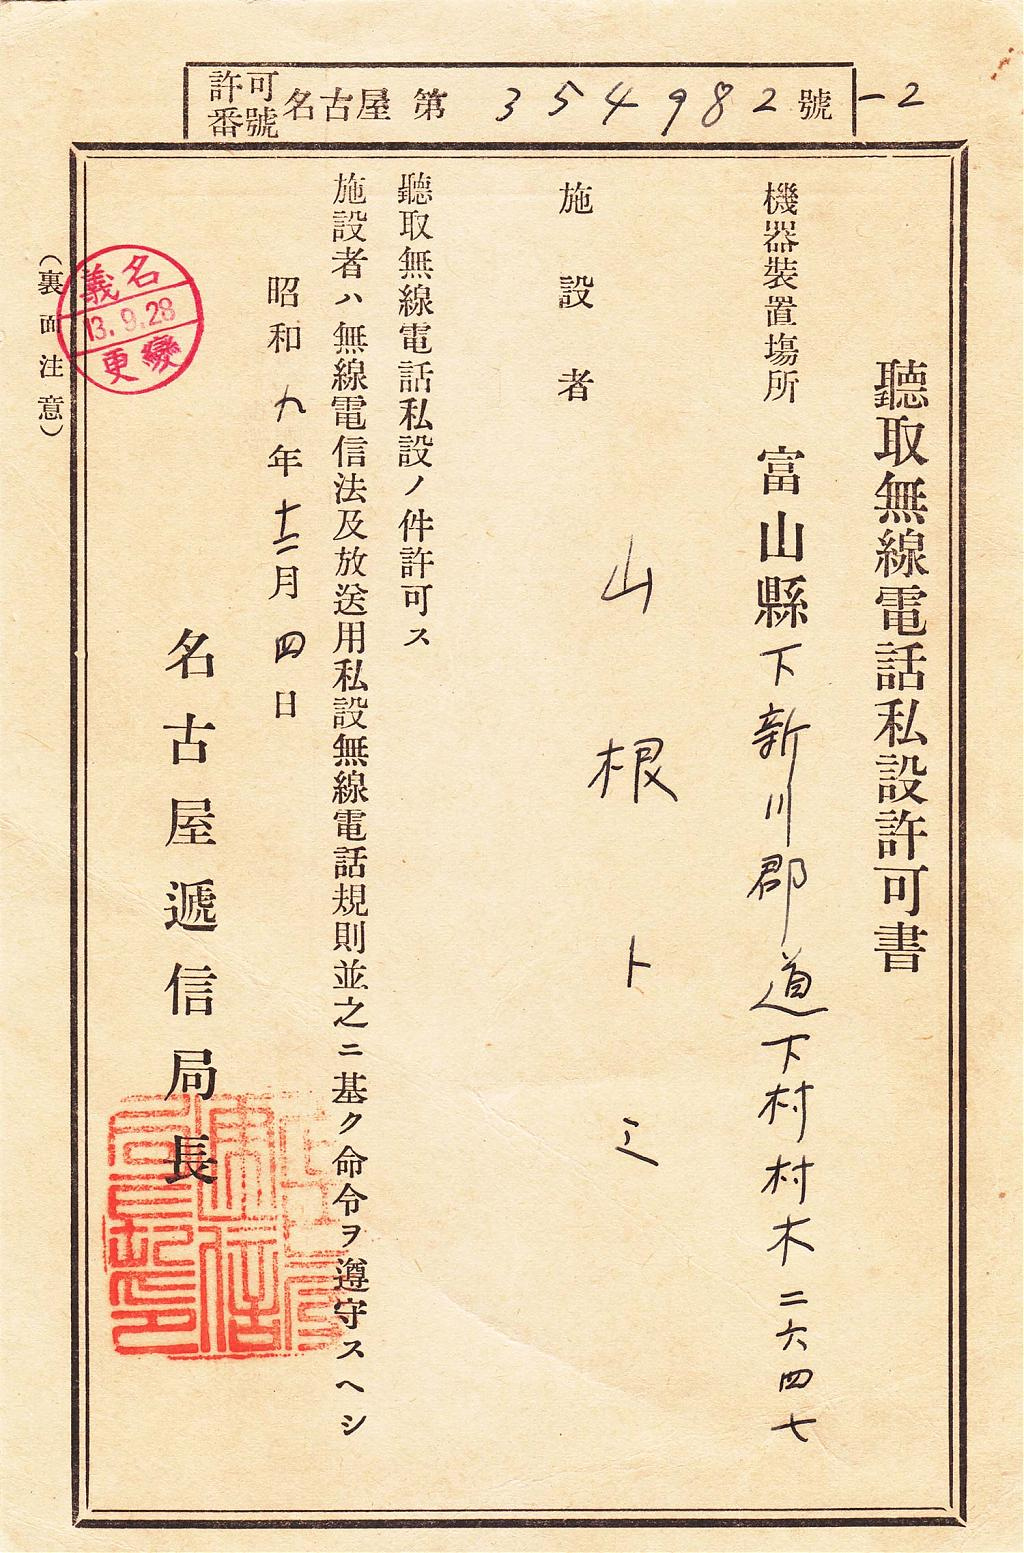 許可番號 名古屋 第 354982 號 -2
聽取無線電話私設許可書
機器裝置場所 富山縣下新川郡道下村村木二六四七
施設者 山根トミ
聽取無線電話私設ノ件許可ス
施設者ハ無線電信法及放送用私設無線電話規則並之ニ基ク命令ヲ遵守スヘシ
昭和九年十二月四日
名古屋遞信局長
名義
13.9.28
變更
(裏面注意)